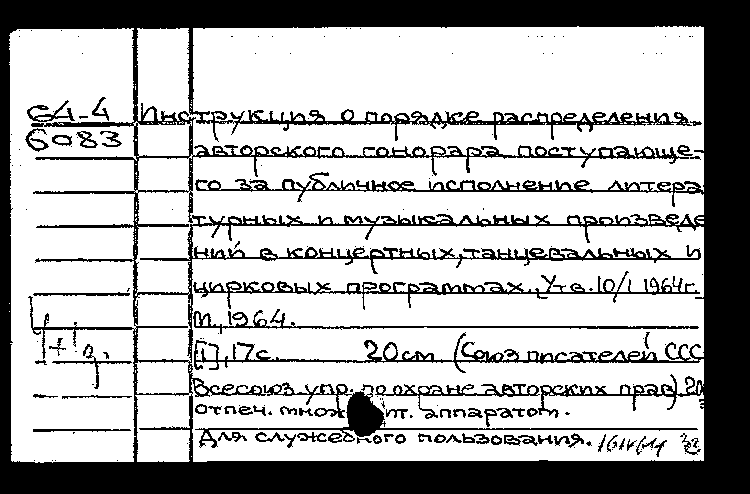 64-4 Инструкция о порядке распределения
6083
авторского гонорара поступающе-
го за публичное исполнение литера
турных и музыкальных произведе
ний в концертных, танцевальных и
цирковых программах. Утв. 10/I 1964г.
М., 1964.
[1], 17с. 20см (Союз писателей ССС
Всесоюз. упр. по охране авторских прав)
отпеч. множ ит. аппаратом.
Для служебного пользования.